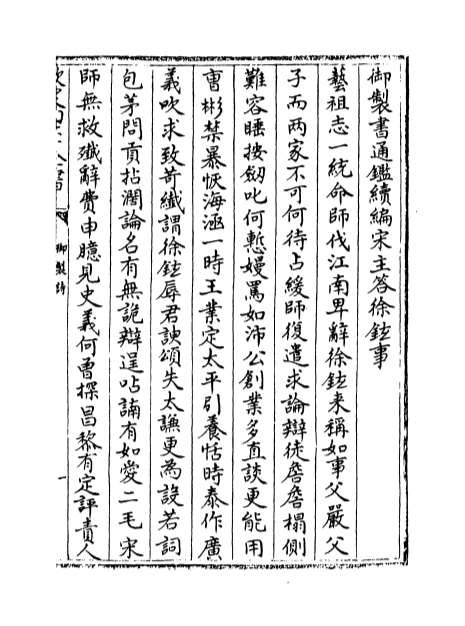 御製書通鑑續編宋主答徐鉉事
藝祖志一統命師伐江南卑辭徐鉉来稱如事父嚴父
子而两家不可何待占緩師復遣求論辯徒詹詹榻側
難容睡按劔叱何慙嫚罵如沛公創業多直談更能用
曹彬禁暴恢海涵一時王業定太平引養恬時泰作廣
義吹求致苛纎謂徐鉉辱君諛頌失太謙更為設若詞
包茅問貢拈濶論名有無詭辯逞呫諵有如愛二毛宋
師無救殱辭費申臆見史義何曽探昌黎有定評責人
御製詩
一